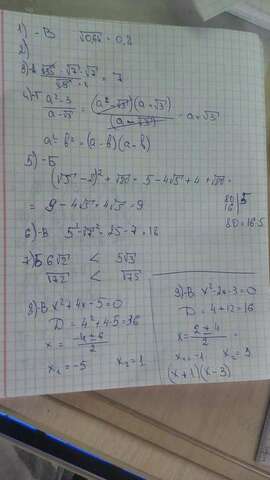 1) - В √0,65 = 0,8
2)
3) - В √35 · √7 · √7 = 7
4) - Г a² - 3 / a - √3 = (a - √3)(a + √3) / (a - √3) = a + √3
a² - b² = (a - b)(a + b)
5) - Б
(√5 - 2)² + √80 = 5 - 4√5 + 4 + √80 =
= 9 - 4√5 + 4√5 = 9
80 | 5
16
80 = 16 · 5
6) - В 5² - √7² = 25 - 7 = 18
7) Б 6√2 < 5√3
√72 < √75
8) - В x² + 4x - 5 = 0
D = 4² + 4·5 = 36
x = -4 ± 6 / 2
x₁ = -5 x₂ = 1
9) - В x² - 2x - 3 = 0
D = 4 + 12 = 16
x = 2 ± 4 / 2 =
x₁ = -1 x₂ = 3
(x + 1)(x - 3)